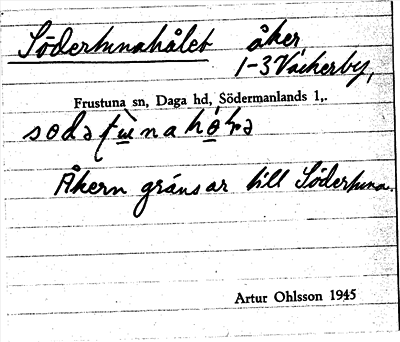 Södertunahålet åker,
1-3 Väckerby,
Frustuna sn, Daga hd, Södermanlands l,.
Åkern gränsar till Södertuna.
Artur Ohlsson 1945